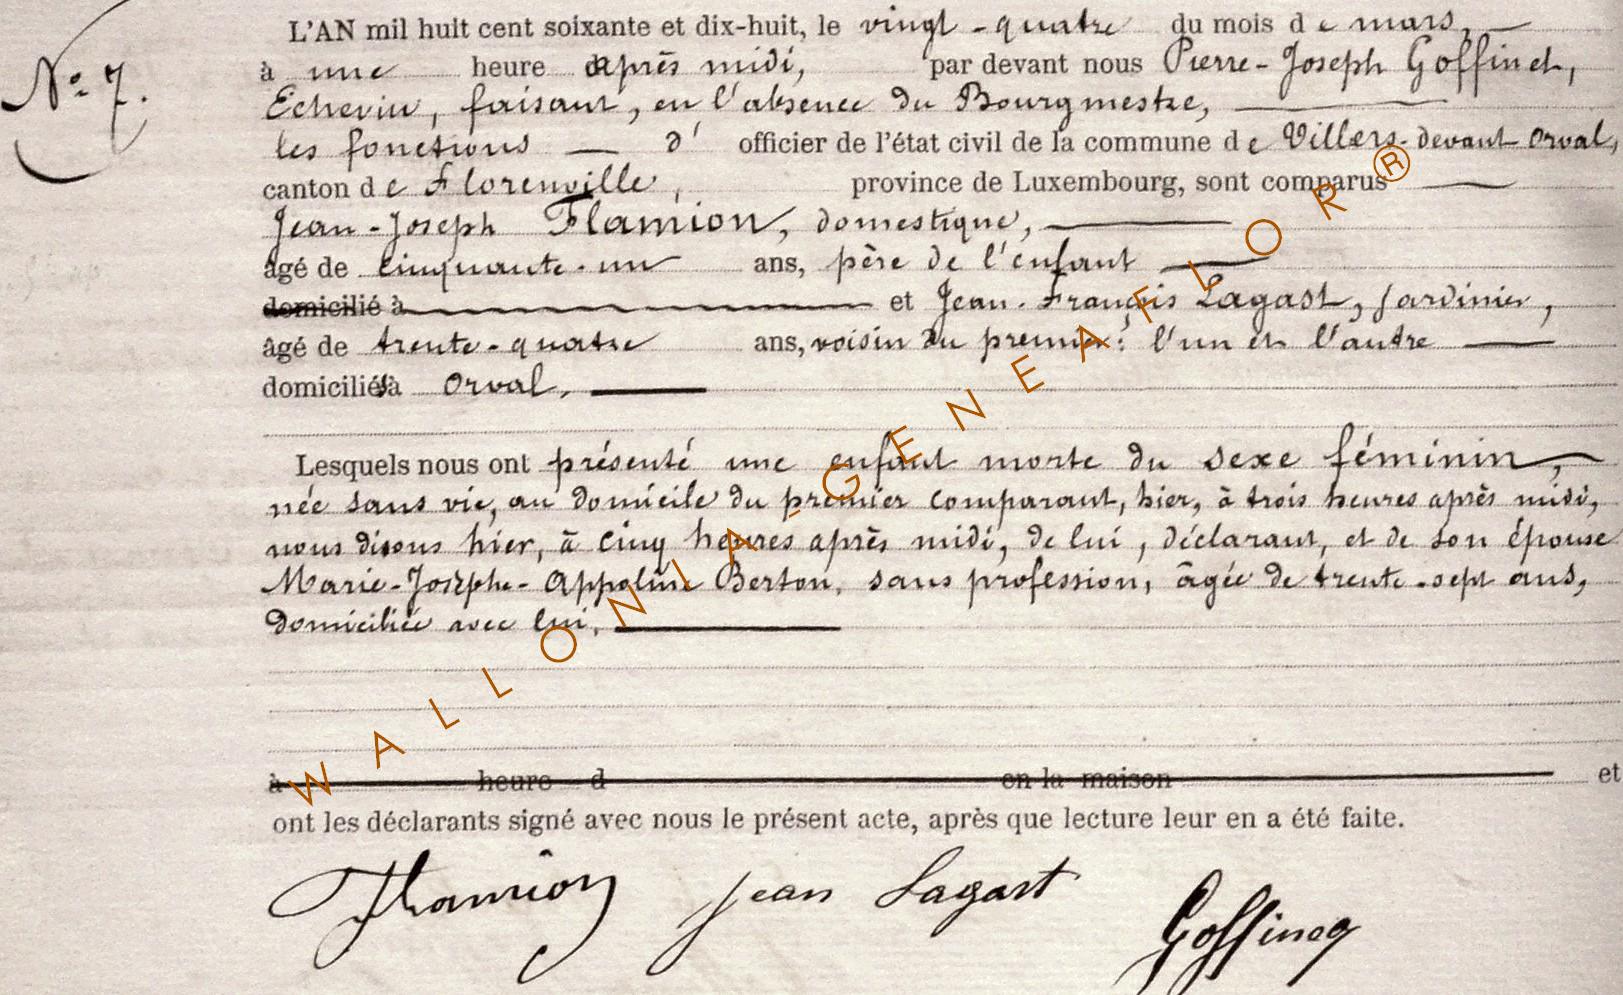 N° 7.
L'AN mil huit cent soixante et dix-huit, le vingt-quatre du mois de mars,
à une heure après midi, par devant nous Pierre-Joseph Goffinet,
Echevin, faisant, en l'absence du Bourgmestre,
les fonctions d' officier de l'état civil de la commune de Villers-devant-Orval,
canton de Florenville, province de Luxembourg, sont comparus
Jean-Joseph Flamion, domestique,
âgé de cinquante-un ans, père de l'enfant
domicilié à et Jean-François Lagast, jardinier,
âgé de trente-quatre ans, voisin du premier; l'un et l'autre
domiciliés à Orval,
Lesquels nous ont présenté une enfant morte du sexe féminin,
née sans vie, au domicile du premier comparant, hier, à trois heures après midi,
nous disons hier, à cinq heures après midi, de lui, déclarant, et de son épouse
Marie-Josèphe-Appoline Berton, sans profession, âgée de trente-sept ans,
domiciliée avec lui,
à heure d en la maison et
ont les déclarants signé avec nous le présent acte, après que lecture leur en a été faite.
Flamion Jean Lagast Goffinet
WALLONIA-GENEAFLOR®